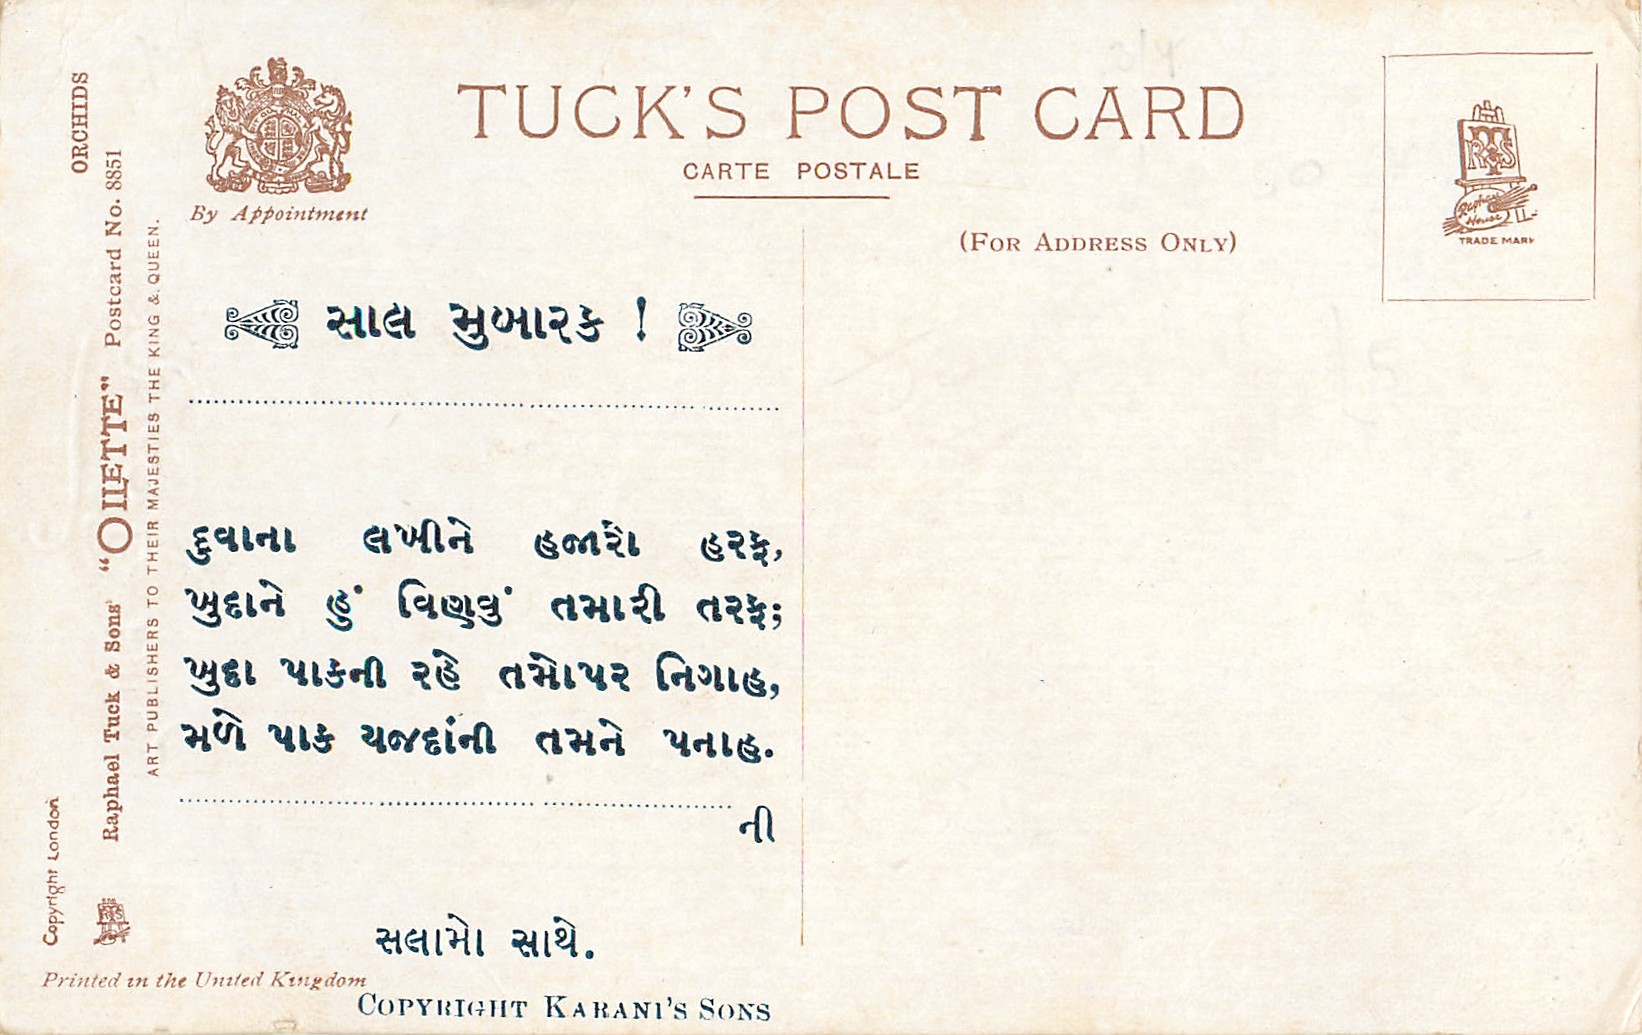 TUCK'S POST CARD
CARTE POSTALE
(FOR ADDRESS ONLY)
By Appointment
TRADE MARK
ORCHIDS
Raphael Tuck & Sons' "OILETTE" Postcard No. 8851
ART PUBLISHERS TO THEIR MAJESTIES THE KING & QUEEN.
Copyright London
સાલ મુબારક !
દુવાના લખીને હજારો હરફ,
ખુદાને હું વિણવું તમારી તરફ;
ખુદા પાકની રહે તમોપર નિગાહ,
મળે પાક યજદાંની તમને પનાહ.
ની
સલામો સાથે.
Printed in the United Kingdom
COPYRIGHT KARANI'S SONS